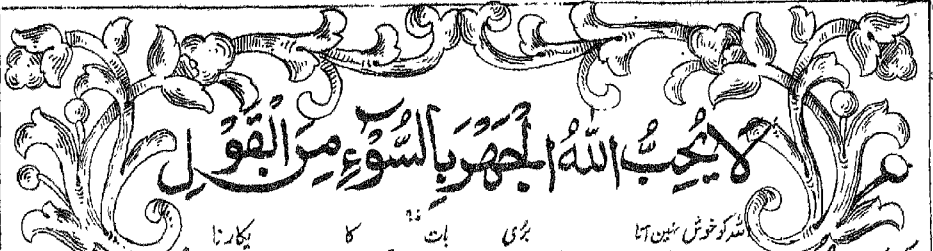 لَا يُحِبُّ اللّٰهُ الْجَهْرَ بِالسُّوْٓءِ مِنَ الْقَوْلِ
اللہ کو خوش نہین آتا بُری بات کا پکارنا